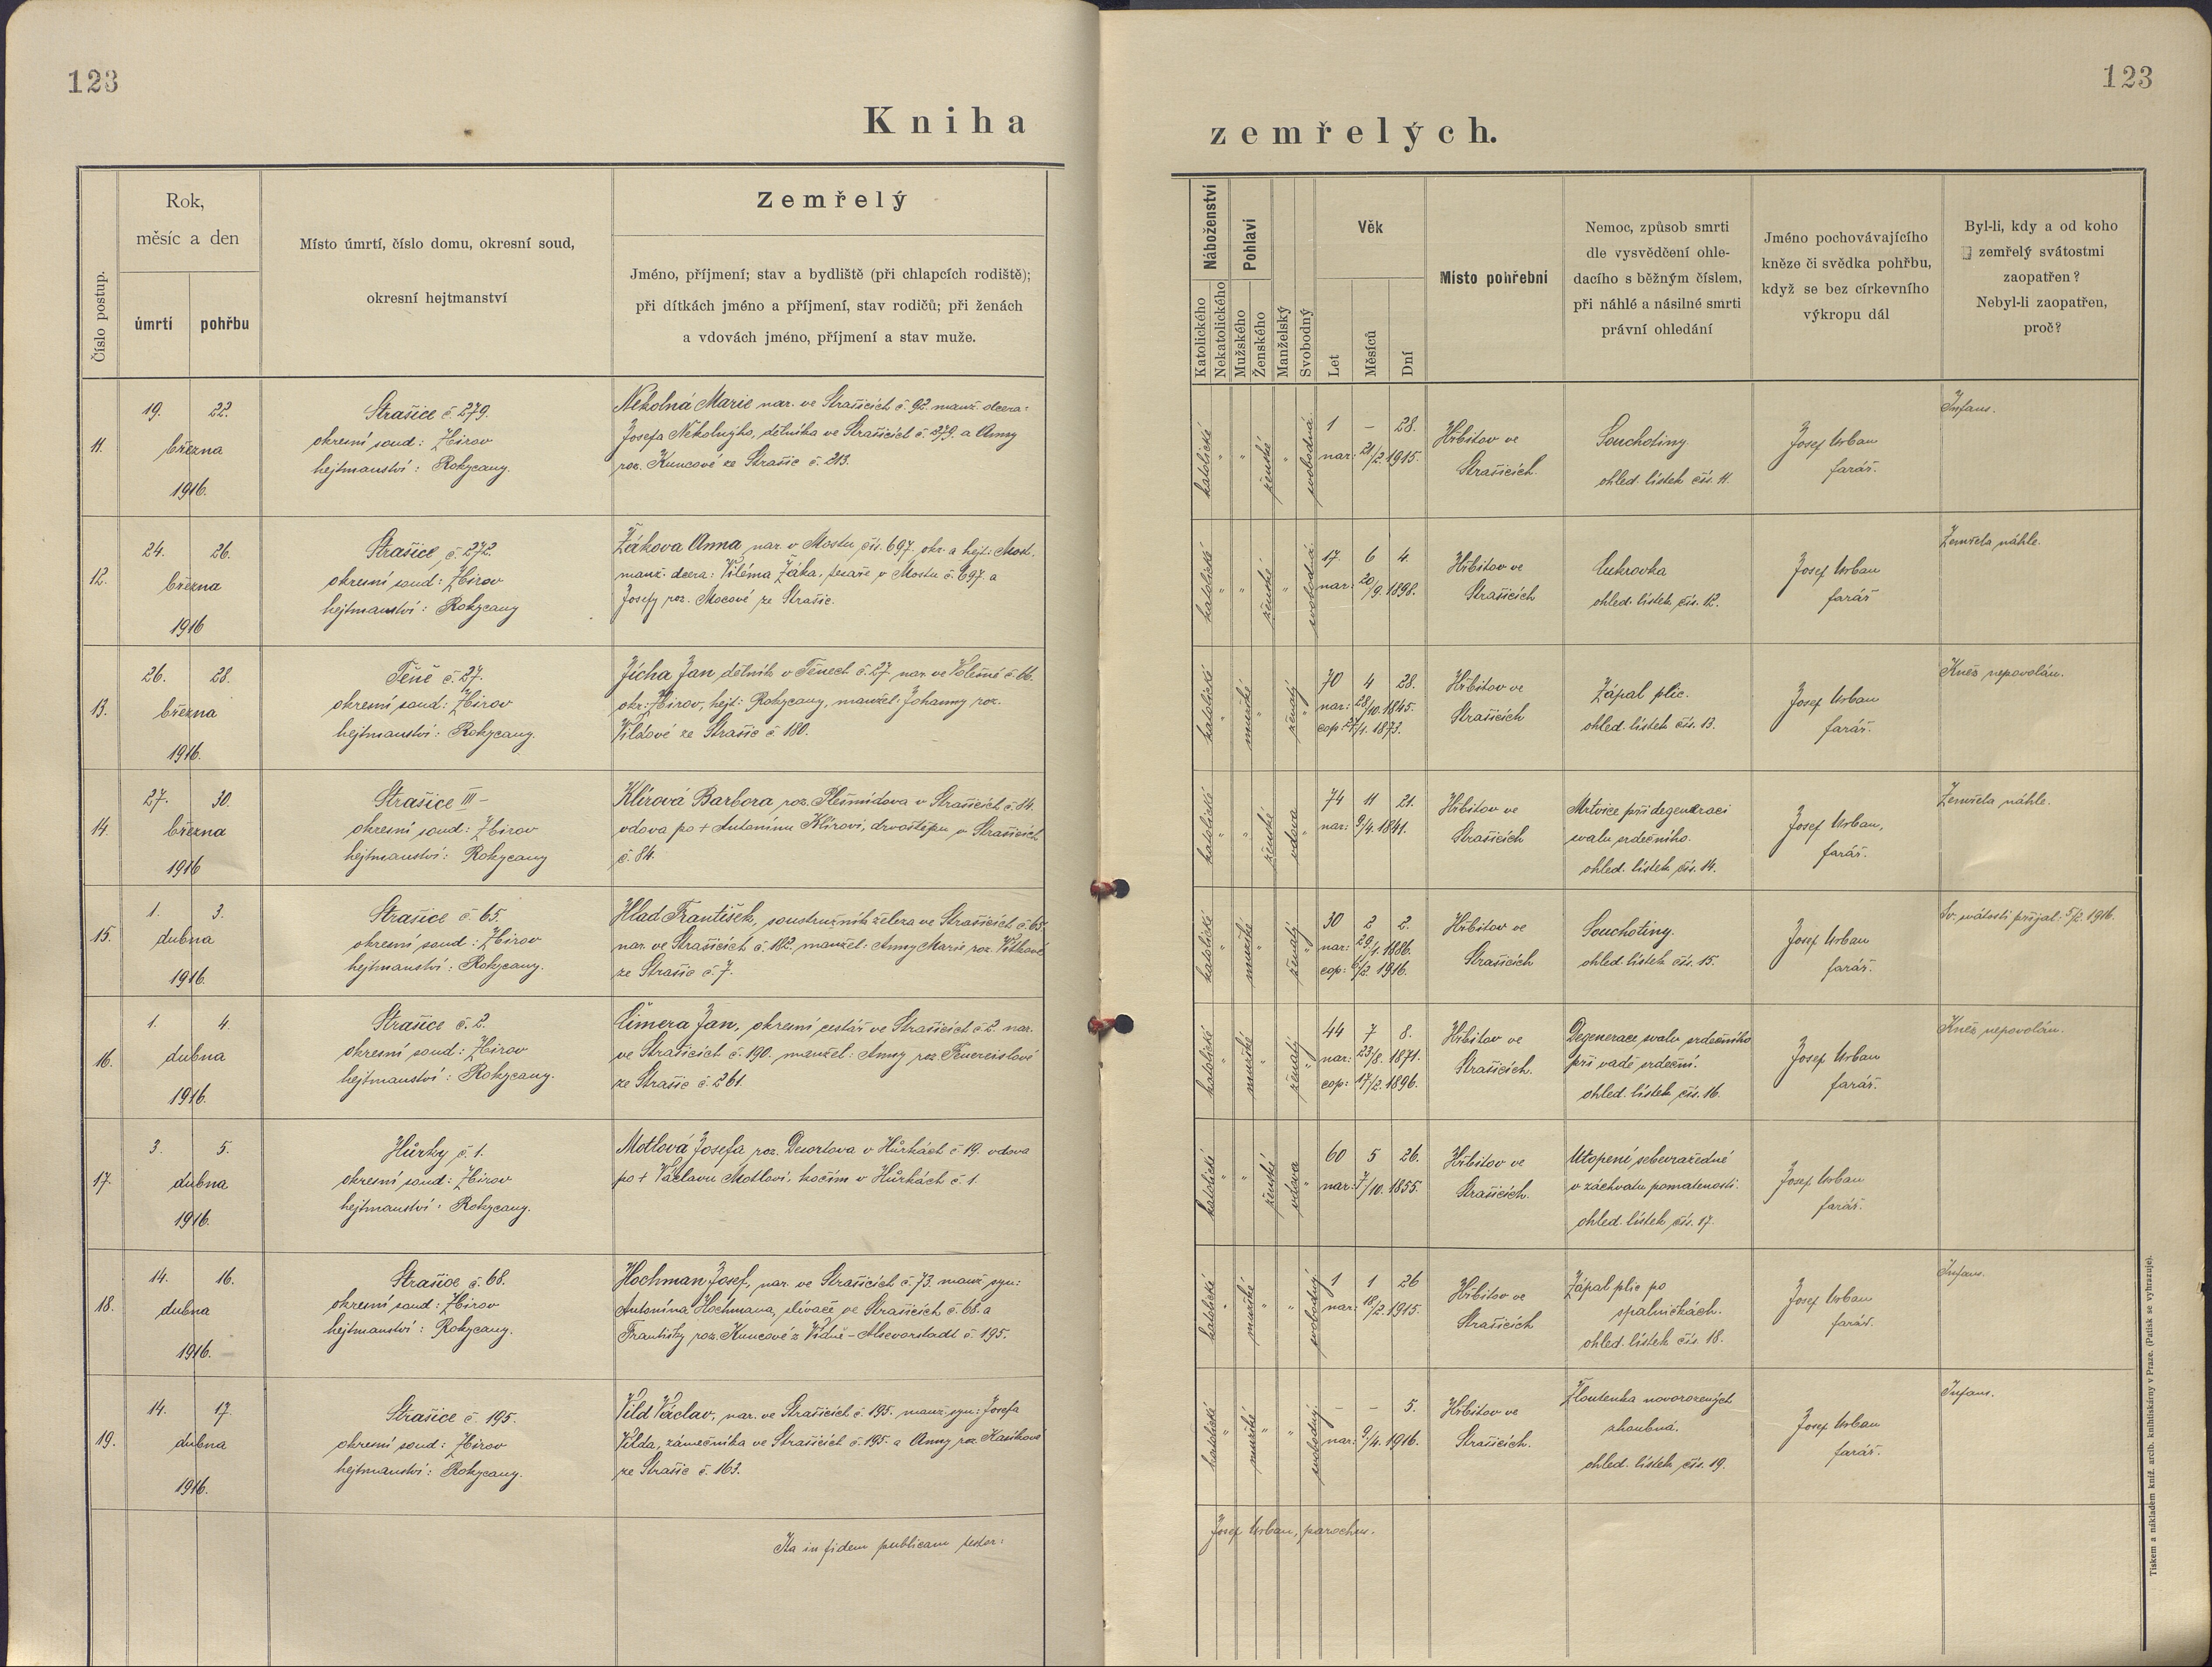 123
123
Kniha
zemřelých.
Číslo postup.
Rok,
měsíc a den
úmrtí
pohřbu
Místo úmrtí, číslo domu, okresní soud,
okresní hejtmanství
Zemřelý
Jméno, příjmení; stav a bydliště (při chlapcích rodiště);
při dítkách jméno a příjmení, stav rodičů; při ženách
a vdovách jméno, příjmení a stav muže.
Náboženství
Katolického
Nekatolického
Pohlaví
Mužského
Ženského
Manželský
Svobodný
Věk
Let
Měsíců
Dní
Místo pohřební
Nemoc, způsob smrti
dle vysvědčení ohle-
dacího s běžným číslem,
při náhlé a násilné smrti
právní ohledání
Jméno pochovávajícího
kněze či svědka pohřbu,
když se bez církevního
výkropu dál
Byl-li, kdy a od koho
zemřelý svátostmi
zaopatřen?
Nebyl-li zaopatřen,
proč?
11.
19. 22.
března
1916.
Strašice č. 279.
okresní soud: Zbirov
hejtmanství: Rokycany.
Nekolná Marie nar. ve Strašicích č. 92. manž. dcera:
Josefa Nekolnýho, dělníka ve Strašicích č. 279. a Anny
roz. Kuncové ze Strašic č. 213.
katolické " " ženské " svobodná
1 – 28.
nar: 21/2. 1915.
Hřbitov ve
Strašicích.
Souchotiny.
ohled. lístek čís. 11.
Josef Urban
farář.
Infans.
12.
24. 26.
března
1916
Strašice č. 272.
okresní soud: Zbirov
hejtmanství: Rokycany
Žákova Anna, nar. v Mostu, čís. 697. okr. a hejt: Most.
manž. dcera: Viléma Žáka, tesaře v Mostu č. 697. a
Josefy roz. Mocové ze Strašic.
katolické " " ženské " svobodná
17. 6 4.
nar: 20/9. 1898.
Hřbitov ve
Strašicích
Cukrovka
ohled. lístek čís. 12.
Josef Urban
farář
Zemřela náhle.
13.
26. 28.
března
1916.
Těně č. 27.
okresní soud: Zbirov
hejtmanství: Rokycany.
Jícha Jan, dělník v Těnech č. 27. nar. ve Volešné č. 66.
okr: Zbirov, hejt: Rokycany, manžel: Johanny roz.
Vildové ze Strašic č. 180.
katolické " mužské " ženatý "
70 4 28.
nar: 28/10. 1845.
cop: 1873.
Hřbitov ve
Strašicích
Zápal plic.
ohled. lístek čís. 13.
Josef Urban
farář.
Kněz nepovolán.
14.
27. 30.
března
1916
Strašice III –
okresní soud: Zbirov
hejtmanství: Rokycany
Klírová Barbora, roz. v Strašicích č. 84.
vdova po + Antonínu Klírovi, drvoštěpu v Strašicích
č. 84.
katolické " " ženské vdova "
74 11 21.
nar: 9/4. 1841.
Hřbitov ve
Strašicích
Mrtvice při degeneraci
svalu srdečního.
ohled. lístek čís. 14.
Josef Urban,
farář.
Zemřela náhle.
15.
1. 3.
dubna
1916.
Strašice č. 65.
okresní soud: Zbirov
hejtmanství: Rokycany.
Hlad František, soustružník železa ve Strašicích č. 65.
nar. ve Strašicích č. 182. manžel: Anny Marie roz. Vítkové
ze Strašic č. 7.
katolické " mužské " ženatý "
30 2 2.
nar: 29/1. 1886.
cop: 6/2. 1916.
Hřbitov ve
Strašicích
Souchotiny.
ohled. lístek čís. 15.
Josef Urban
farář.
Sv. svátosti přijal: 5/2. 1916.
16.
1. 4.
dubna
1916.
Strašice č. 2.
okresní soud: Zbirov
hejtmanství: Rokycany.
Čimera Jan, okresní cestář ve Strašicích č. 2. nar.
ve Strašicích č. 190. manžel: Anny roz. Feuereislové
ze Strašic č. 261.
katolické " mužské " ženatý "
44 7 8.
nar: 23/8. 1871.
cop: 17/2. 1896.
Hřbitov ve
Strašicích.
Degenerace svalu srdečního
při vadě srdeční.
ohled. lístek čís. 16.
Josef Urban
farář.
Kněz nepovolán.
17.
3. 5.
dubna
1916.
Hůrky č. 1.
okresní soud: Zbirov
hejtmanství: Rokycany.
Motlová Josefa roz. Desortova v Hůrkách č. 19. vdova
po + Václavu Motlovi, kočím v Hůrkách č. 1.
katolické " " ženské vdova "
60 5 26.
nar: 7/10. 1855.
Hřbitov ve
Strašicích.
Utopení sebevražedné
v záchvatu pomatenosti.
ohled. lístek čís. 17.
Josef Urban
farář.
18.
14. 16.
dubna
1916.
Strašice č. 68.
okresní soud: Zbirov
hejtmanství: Rokycany.
Hochman Josef, nar. ve Strašicích č. 73. manž. syn:
Antonína Hochmana, slévače ve Strašicích č. 68. a
Františky roz. Kuncové z Vídně – Alsevorstadt č. 195.
katolické " mužské " " svobodný
1 1 26
nar: 18/2. 1915.
Hřbitov ve
Strašicích
Zápal plic po
spalničkách.
ohled. lístek čís. 18.
Josef Urban
farář.
Infans.
19.
14. 17.
dubna
1916.
Strašice č. 195.
okresní soud: Zbirov
hejtmanství: Rokycany.
Vild Václav, nar. ve Strašicích č. 195. manž. syn: Josefa
Vilda, zámečníka ve Strašicích č. 195. a Anny roz. Kasíkové
ze Strašic č. 163.
katolické " mužské " " svobodný
– – 5.
nar: 9/4. 1916.
Hřbitov ve
Strašicích.
Žloutenka novorozených
zhoubná.
ohled. lístek čís. 19.
Josef Urban
farář.
Infans.
Ita in fidem publicam testor:
Josef Urban, parochus.
Tiskem a nákladem kníž. arcib. knihtiskárny v Praze. (Patisk se vyhrazuje).